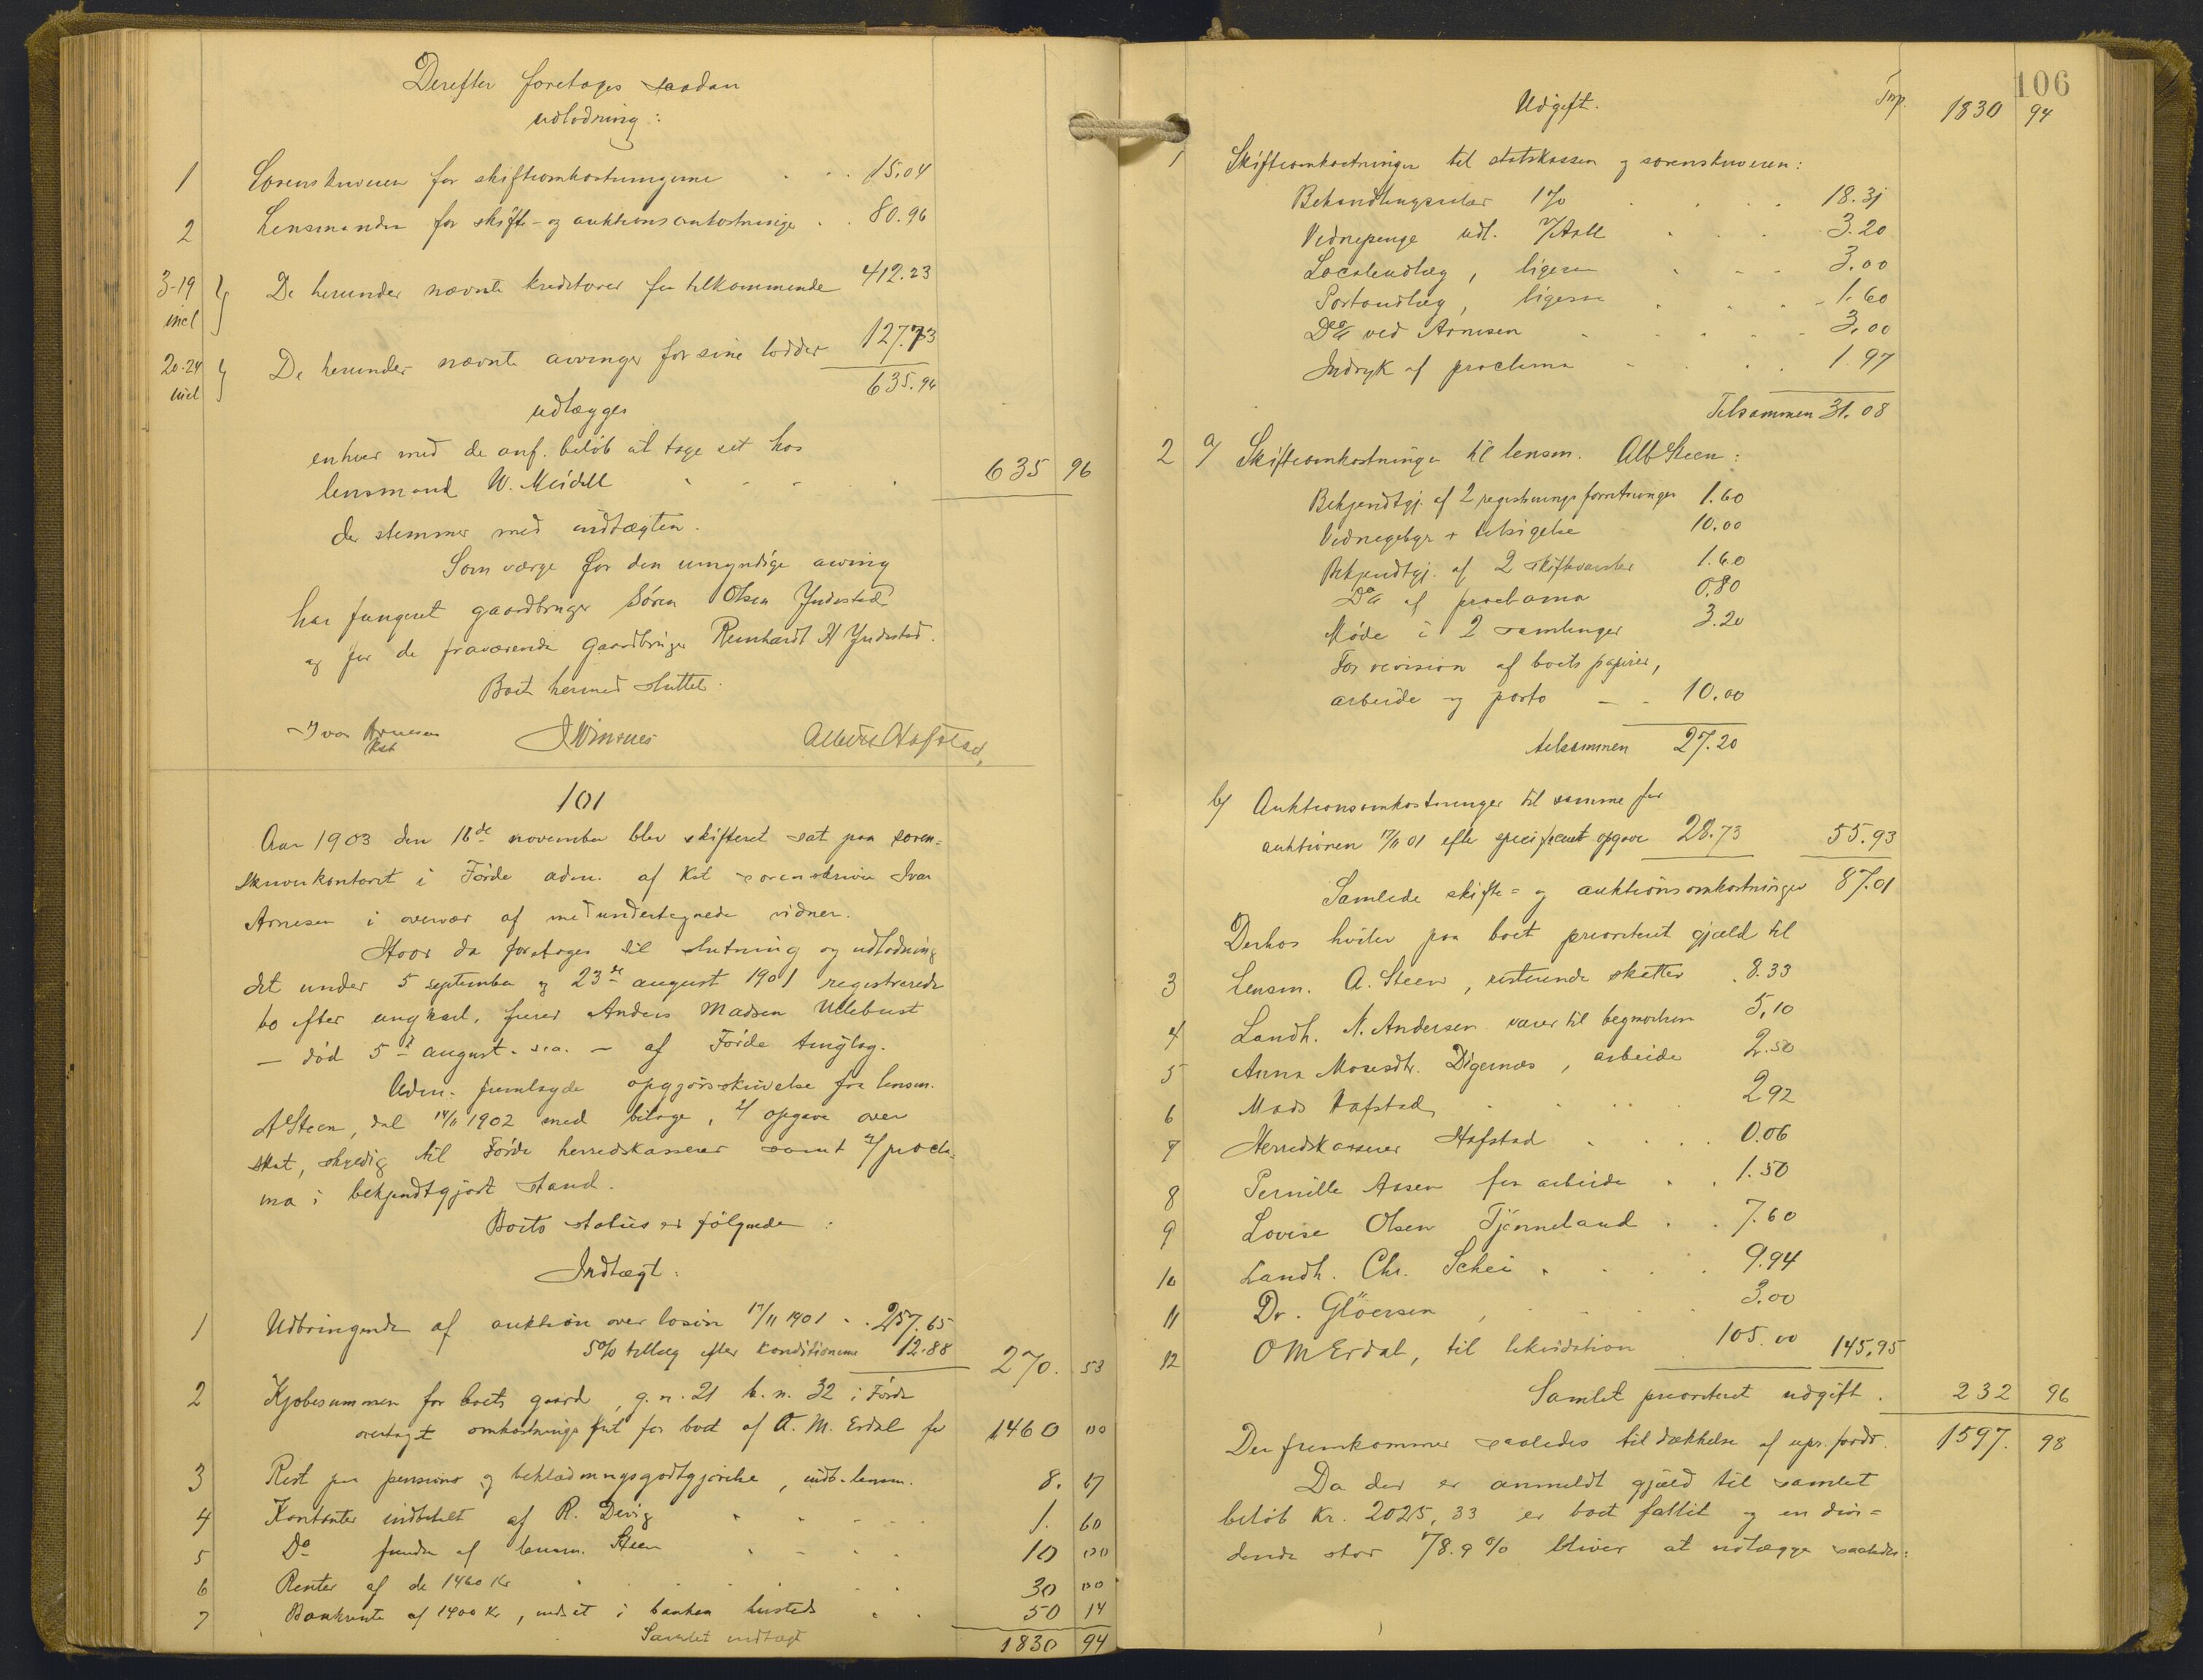 Derefter foretages saadan
udlodning:
1 Sorenskriveren for skifteomkostningerne 15.04
2 Lensmanden for skifte- og auktionsomkostninger 80.96
3-19 incl De herunder nævnte kreditorer for tilkommende 412.23
20-24 incl De herunder nævnte arvinger for sine lodder 127.73
635.96
udlægges
enhver med de anf. beløb at tage ut hos
lensmand W. Meidell 635 96
der stemmer med indtægten.
Som værge for den umyndige arving
har fungeret gaardbruger Søren Olsen Yndestad
og for de fraværende Gaardbruger Reinhardt H Yndestad.
Boet hermed sluttet.
Ivar Arnesen Kst J Vinsnes Albert Hafstad,
101
Aar 1903 den 18de november blev skifteret sat paa soren=
skriverkontoret i Førde adm. af Kst sorenskriver Ivar
Arnesen i overvær af medundertegnede vidner.
Hvor da foretoges til slutning og udlodning
det under 5 september og 23de august 1901 registrerede
bo efter ungkarl, furer Anders Madsen Ullebust
— død 5te august s.a. — af Førde tinglag.
Adm. fremlagde opgjørsskrivelse fra lensm.
A Steen, dat 14/11 1902 med bilage, 4/ opgave over
skat, skyldig til Førde herredskasserer samt 4/ procla-
ma i bekjendtgjort stand.
Boets status er følgende:
Indtægt.
1 Udbringende af auktion over løsøre 17/11 1901 257.65
5% tillæg efter konditionerne 12.88 270. 53
2 Kjøbesummen for boets gaard, g.n. 21 b.n. 32 i Førde
overtagt omkostningsfrit for boet af O. M. Erdal for 1460 00
3 Rest paa pensions og beklædningsgodtgjørelse, indb. lensm. 8. 67
4 Kontanter indbetalt af R. Devig 1. 60
5 Do funden af lensm. Steen 10 00
6 Renter af de 1460 Kr 30 00
7 Bankrente af 1400 Kr, indsat i banken hersteds 50 14
Samlet indtægt 1830 94
106
Udgift. Trsp. 1830 94
1 Skifteomkostninger til statskassen og sorenskriveren:
Behandlingssalær 1% 18.31
Vidnepenge udl. v/Aall 3.20
Localeudlæg, ligesaa 3.00
Portoudlæg, ligesaa 1.60
Do ved Arnesen 3.00
Indryk af proclama 1.97
Tilsammen 31.08
2 a/ Skifteomkostninger til lensm. Alb Steen:
Bekjendtgj. af 2 registreringsforretninger 1.60
Vidnegebyr + tilsigelse 10.00
Bekjendtgj. af 2 skiftevarsler 1.60
Do af proclama 0.80
Møde i 2 samlinger 3.20
For revision af boets papirer,
arbeide og porto 10.00
tilsammen 27.20
b/ Auktionsomkostninger til samme for
auktionen 17/11 01 efter specificeret opgave 28.73 55.93
Samlede skifte= og auktionsomkostninger 87.01
Derhos hviler paa boet prioriteret gjæld til
3 Lensm. A. Steen, resterende skatter 8.33
4 Landh. N. Andersen varer til begravelsen 5,10
5 Anna Mosesdtr. Digernæs, arbeide 2.50
6 Mads Hafstad 2.92
7 Herredskasserer Hafstad 0.06
8 Pernille Aasen for arbeide 1.50
9 Lovise Olsen Tjønneland 7.60
10 Landh. Chr. Schei 9.94
11 Dr. Glöersen 3.00
12 O M Erdal, til likvidation 105.00 145,95
Samlet prioriteret udgift 232 96
Der fremkommer saaledes til dækkelse af upr. fordr. 1597. 98
Da der er anmeldt gjæld til samlet
beløb Kr. 2025,33 er boet fallit og en divi=
dende stor 78.9% bliver at udlægge saaledes: